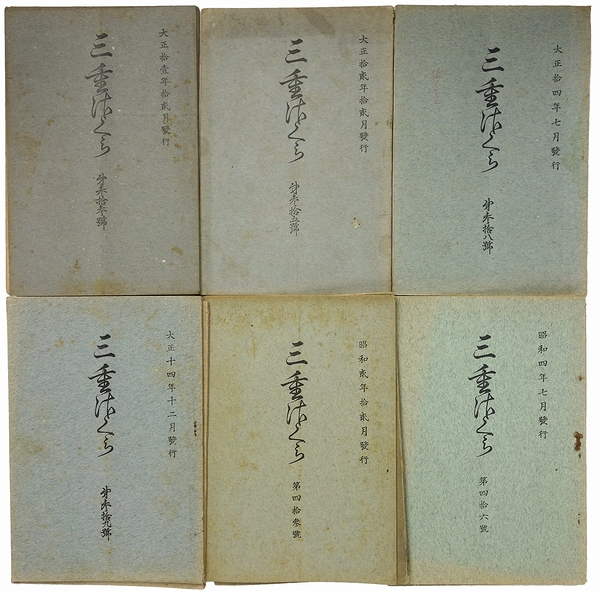 大正拾壹年拾貳月發行
三重佐くら
第参拾参號
大正拾貳年拾貳月發行
三重佐くら
第参拾五號
大正拾四年七月發行
三重佐くら
第参拾八號
大正十四年十二月發行
三重佐くら
第参拾九號
昭和貳年拾貳月發行
三重佐くら
第四拾参號
昭和四年七月發行
三重佐くら
第四拾六號